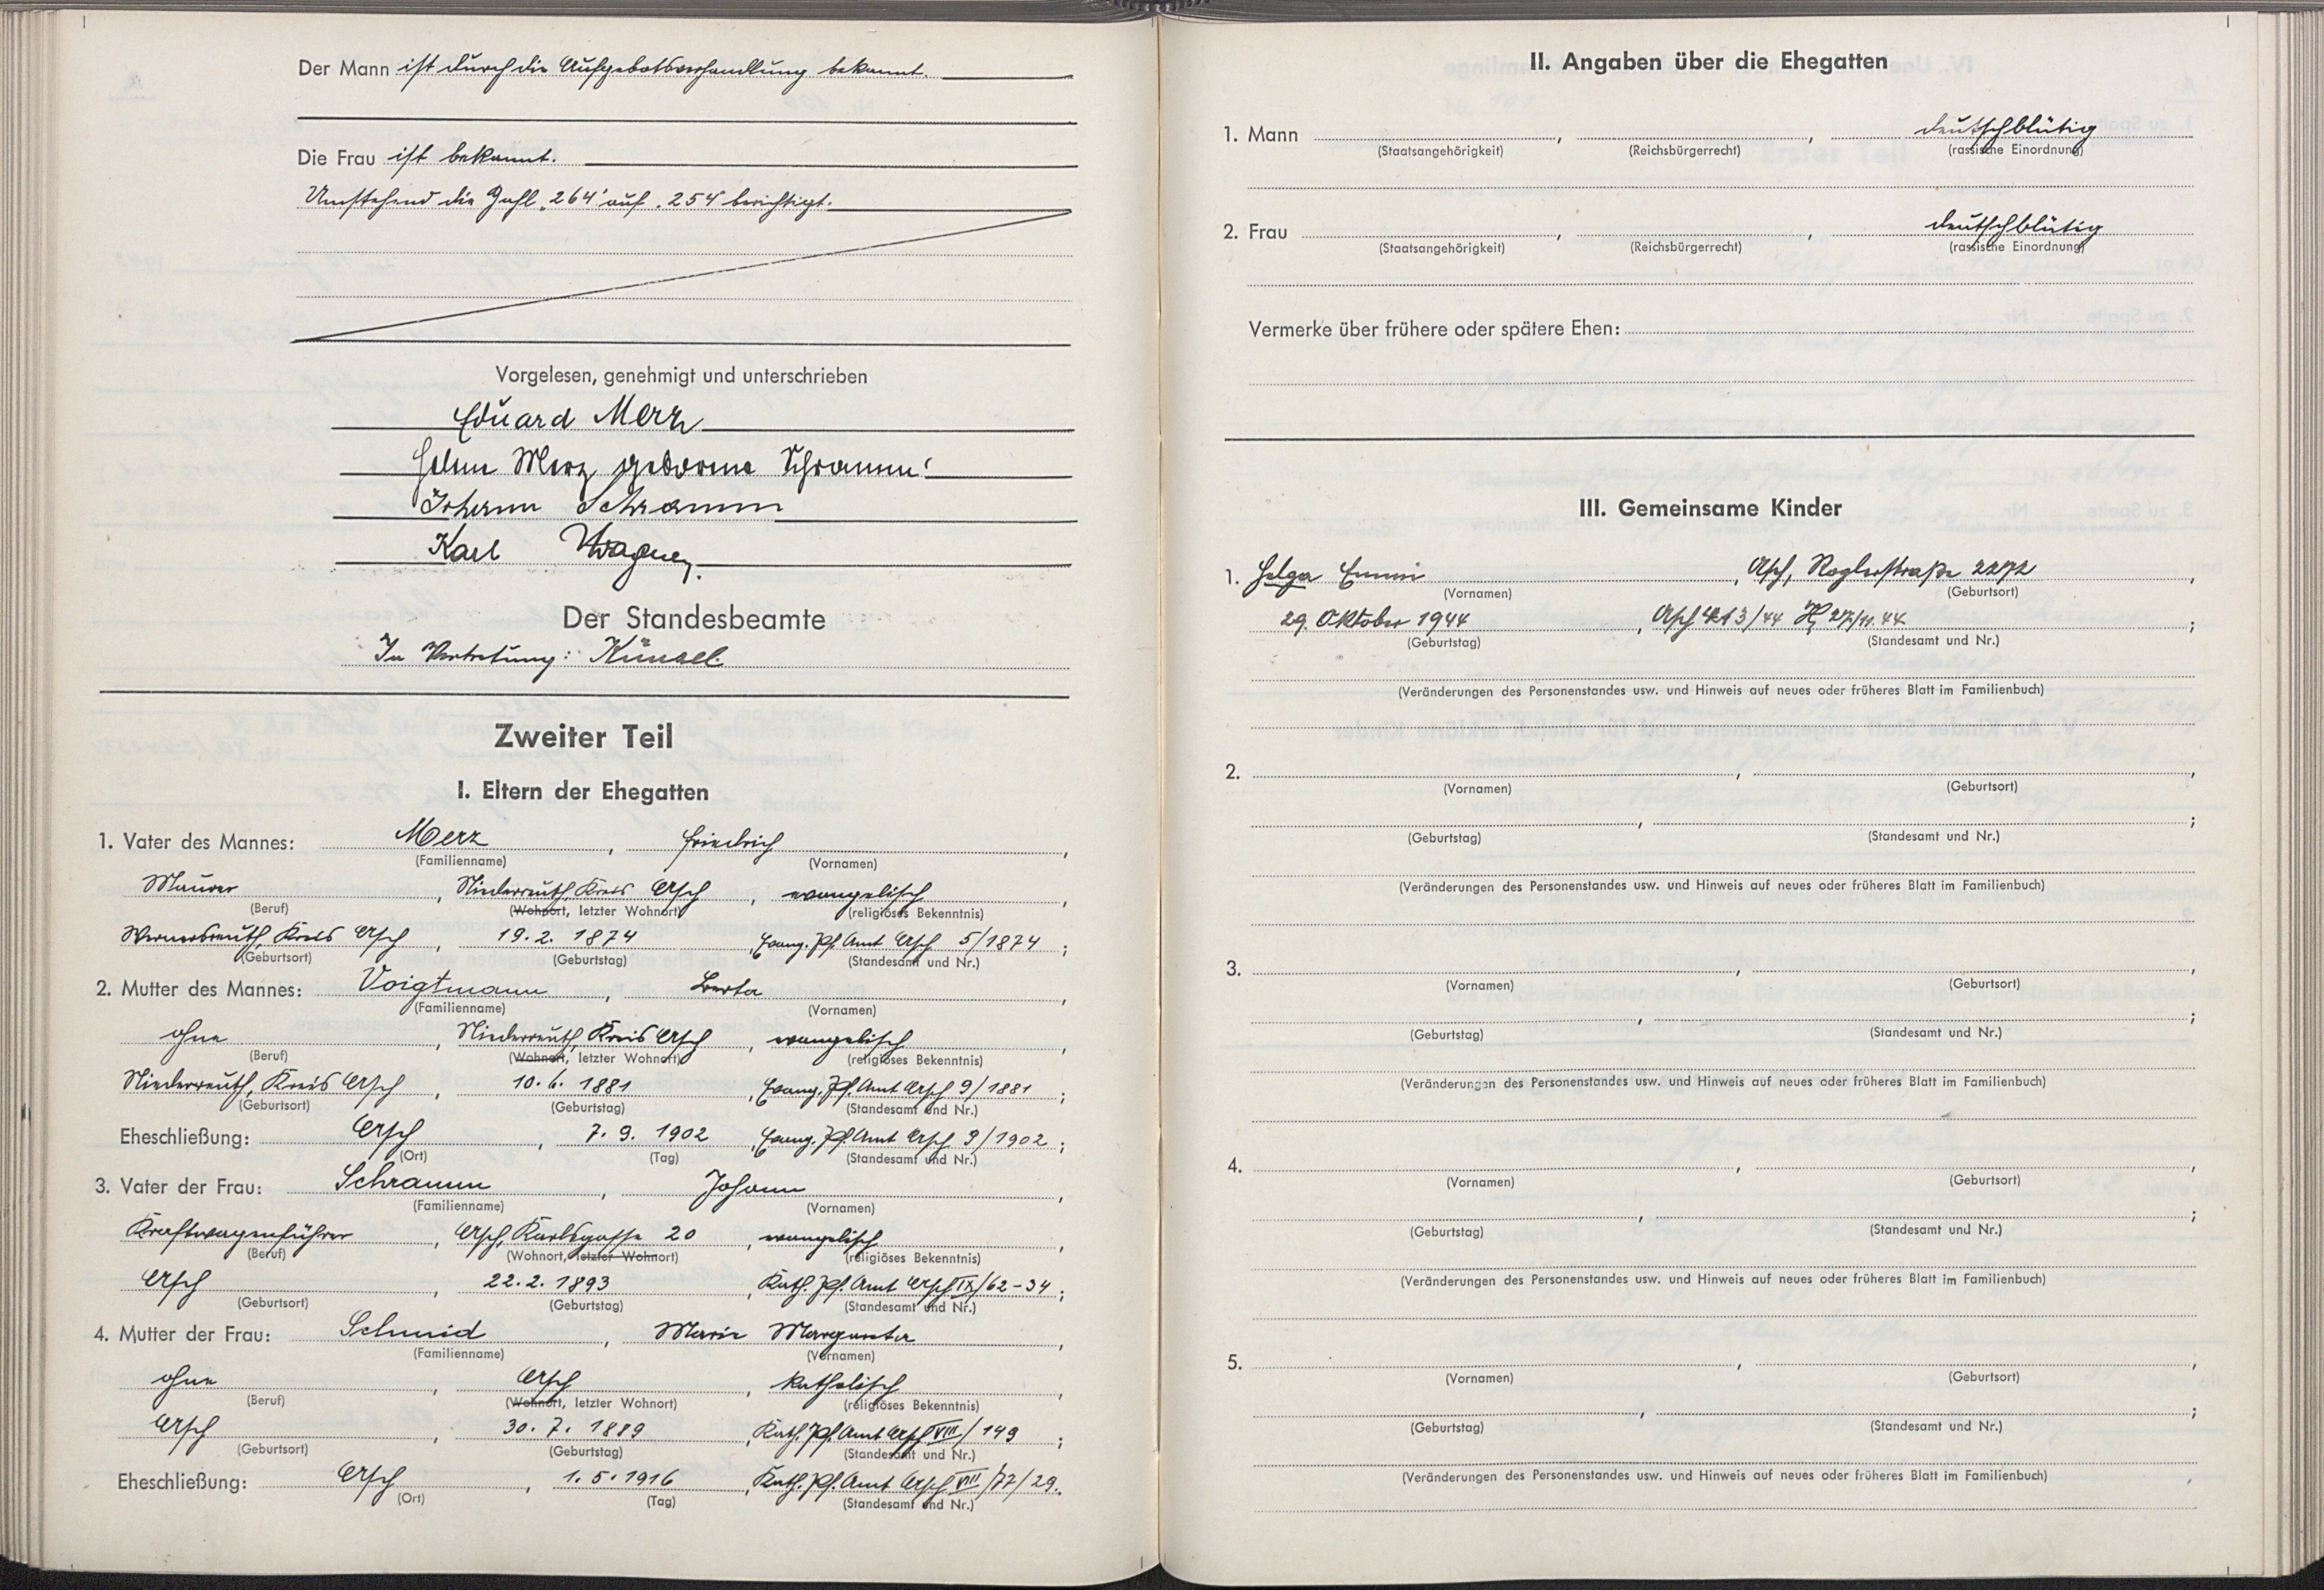 Der Mann ist durch die Aufgebotsverhandlung bekannt.
Die Frau ist bekannt.
Umstehend die Zahl „264" auf „254" berichtigt.
Vorgelesen, genehmigt und unterschrieben
Eduard Merz
Helene Merz geborene Schramm
Johann Schramm
Karl Wagner
Der Standesbeamte
In Vertretung: Künzel
Zweiter Teil
I. Eltern der Ehegatten
1. Vater des Mannes: Merz, Friedrich,
(Familienname) (Vornamen)
Maurer, Niederreuth, Kreis Asch, evangelisch,
(Beruf) (Wohnort, letzter Wohnort) (religiöses Bekenntnis)
Wernersreuth, Kreis Asch, 19.2.1874, Evang. Pf. Amt Asch 5/1874;
(Geburtsort) (Geburtstag) (Standesamt und Nr.)
2. Mutter des Mannes: Voigtmann, Berta,
(Familienname) (Vornamen)
ohne, Niederreuth, Kreis Asch, evangelisch,
(Beruf) (Wohnort, letzter Wohnort) (religiöses Bekenntnis)
Niederreuth, Kreis Asch, 10.6.1881, Evang. Pf. Amt Asch 9/1881;
(Geburtsort) (Geburtstag) (Standesamt und Nr.)
Eheschließung: Asch, 7.9.1902, Evang. Pf. Amt Asch 9/1902;
(Ort) (Tag) (Standesamt und Nr.)
3. Vater der Frau: Schramm, Johann,
(Familienname) (Vornamen)
Kraftwagenführer, Asch, Karlsgasse 20, evangelisch,
(Beruf) (Wohnort, letzter Wohnort) (religiöses Bekenntnis)
Asch, 22.2.1893, Kath. Pf. Amt Asch IX/62-34;
(Geburtsort) (Geburtstag) (Standesamt und Nr.)
4. Mutter der Frau: Schmid, Marie Margareta,
(Familienname) (Vornamen)
ohne, Asch, katholisch,
(Beruf) (Wohnort, letzter Wohnort) (religiöses Bekenntnis)
Asch, 30.7.1889, Kath. Pf. Amt Asch VIII/149;
(Geburtsort) (Geburtstag) (Standesamt und Nr.)
Eheschließung: Asch, 1.5.1916, Kath. Pf. Amt Asch VII/77/29.
(Ort) (Tag) (Standesamt und Nr.)
II. Angaben über die Ehegatten
1. Mann , , deutschblütig
(Staatsangehörigkeit) (Reichsbürgerrecht) (rassische Einordnung)
2. Frau , , deutschblütig
(Staatsangehörigkeit) (Reichsbürgerrecht) (rassische Einordnung)
Vermerke über frühere oder spätere Ehen:
III. Gemeinsame Kinder
1. Helga Emmi, Asch, Roglerstraße 2272,
(Vornamen) (Geburtsort)
29. Oktober 1944, Asch 413/44 27/11.44;
(Geburtstag) (Standesamt und Nr.)
(Veränderungen des Personenstandes usw. und Hinweis auf neues oder früheres Blatt im Familienbuch)
2. , ,
(Vornamen) (Geburtsort)
, ;
(Geburtstag) (Standesamt und Nr.)
(Veränderungen des Personenstandes usw. und Hinweis auf neues oder früheres Blatt im Familienbuch)
3. , ,
(Vornamen) (Geburtsort)
, ;
(Geburtstag) (Standesamt und Nr.)
(Veränderungen des Personenstandes usw. und Hinweis auf neues oder früheres Blatt im Familienbuch)
4. , ,
(Vornamen) (Geburtsort)
, ;
(Geburtstag) (Standesamt und Nr.)
(Veränderungen des Personenstandes usw. und Hinweis auf neues oder früheres Blatt im Familienbuch)
5. , ,
(Vornamen) (Geburtsort)
, ;
(Geburtstag) (Standesamt und Nr.)
(Veränderungen des Personenstandes usw. und Hinweis auf neues oder früheres Blatt im Familienbuch)